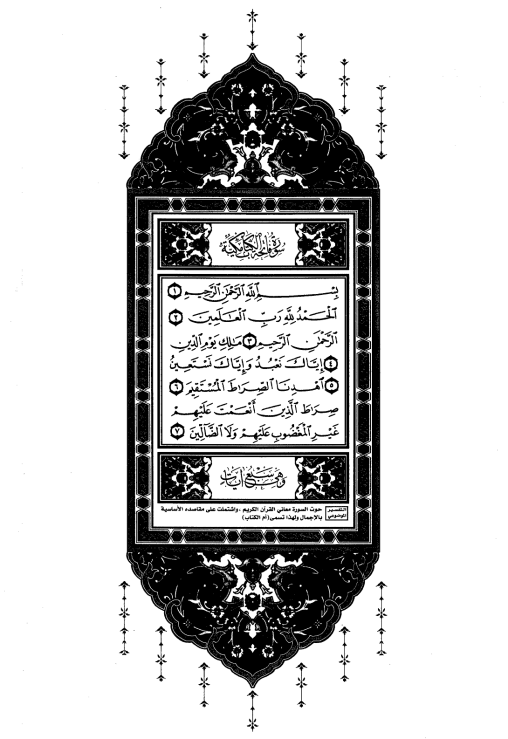 سورة فاتحة الكتاب مكية
بِسْمِ ٱللَّهِ ٱلرَّحْمَٰنِ ٱلرَّحِيمِ ١
ٱلْحَمْدُ لِلَّهِ رَبِّ ٱلْعَٰلَمِينَ ٢
ٱلرَّحْمَٰنِ ٱلرَّحِيمِ ٣ مَٰلِكِ يَوْمِ ٱلدِّينِ
٤ إِيَّاكَ نَعْبُدُ وَإِيَّاكَ نَسْتَعِينُ
٥ ٱهْدِنَا ٱلصِّرَاطَ ٱلْمُسْتَقِيمَ ٦
صِرَاطَ ٱلَّذِينَ أَنْعَمْتَ عَلَيْهِمْ
غَيْرِ ٱلْمَغْضُوبِ عَلَيْهِمْ وَلَا ٱلضَّآلِّينَ ٧
وهي سبع آيات
التفسير الموضوعي
حوت السورة معاني القرآن الكريم ، واشتملت على مقاصده الأساسية
بالإجمال ولهذا تسمى (أم الكتاب)